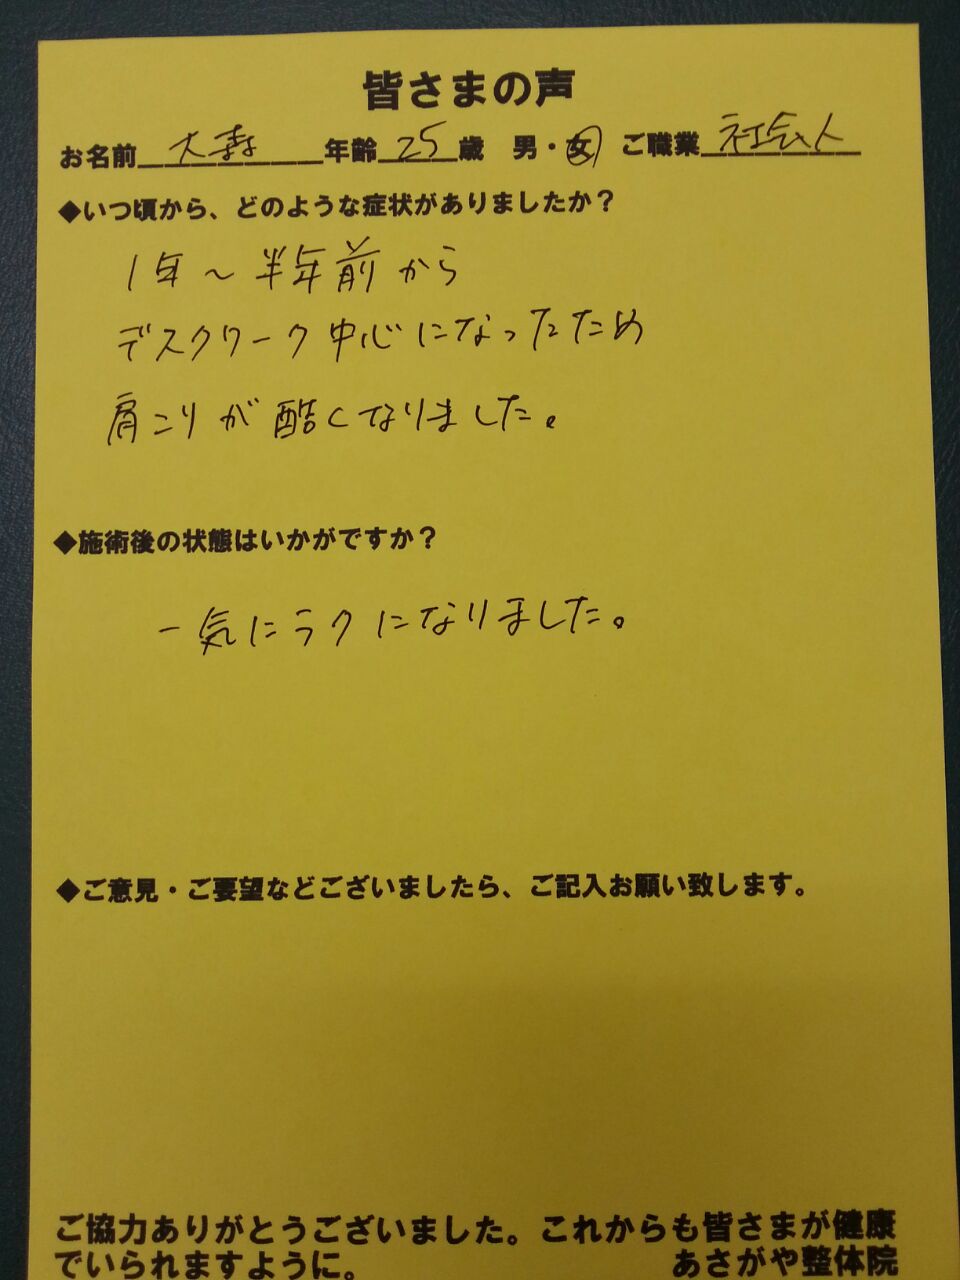 皆さまの声
お名前 大 年齢 25 歳 男・女 ご職業 社会人
◆いつ頃から、どのような症状がありましたか？
1年～半年前から
デスクワーク中心になったため
肩こりが酷くなりました。
◆施術後の状態はいかがですか？
一気にラクになりました。
◆ご意見・ご要望などございましたら、ご記入お願い致します。
ご協力ありがとうございました。これからも皆さまが健康
でいられますように。 あさがや整体院